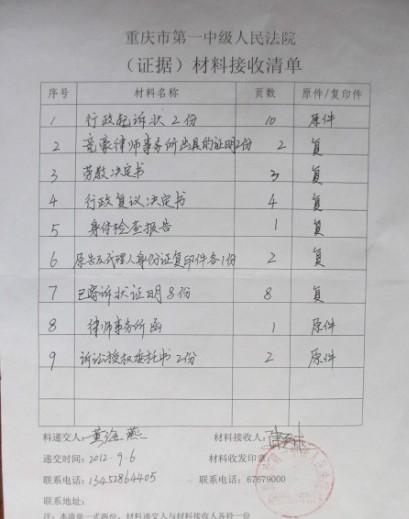 重庆市第一中级人民法院
（证据）材料接收清单
序号 材料名称 页数 原件/复印件
1 行政起诉状2份 10 原件
2 律师事务所出具的证明2份 2 复
3 劳教决定书 3 复
4 行政复议决定书 4 复
5 身体检查报告 1 复
6 原告及代理人身份证复印件各1份 2 复
7 已寄诉状证明8份 8 复
8 律师事务所函 1 原件
9 诉讼授权委托书2份 2 原件
料递交人：黄海燕 材料接收人：
递交时间：2012.9.6 材料收发印章：
联系电话：13452864405 联系电话：67679000
联系地址：
注：本清单一式两份，材料递交人与材料接收人各份一份